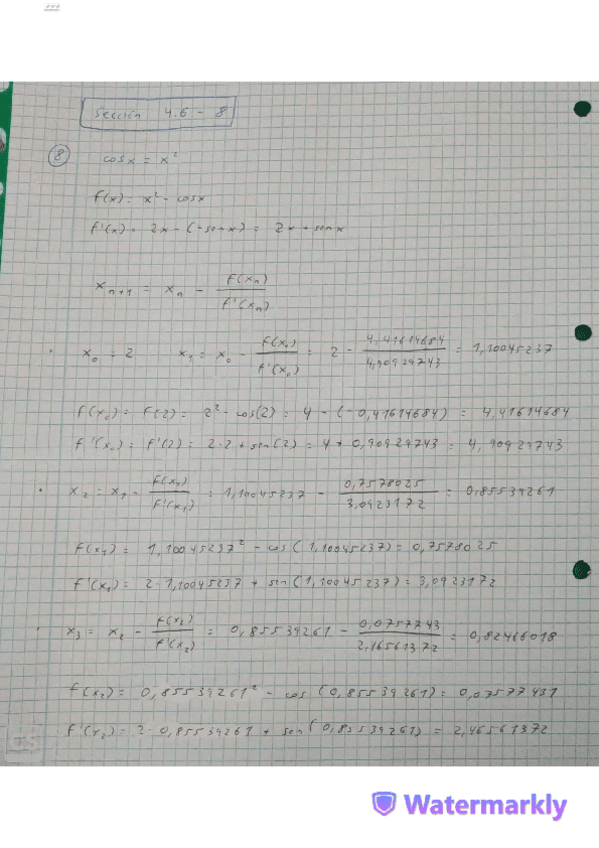 Sección 4.6 - 8
⑧ cosx = x²
f(x) = x² - cosx
f'(x) = 2x - (-senx) = 2x + senx
x_{n+1} = x_n - f(x_n) / f'(x_n)
· x₀ = 2 x₁ = x₀ - f(x₀) / f'(x₀) = 2 - 4,41614684 / 4,90929743 = 1,10045237
f(x₀) = f(2) = 2² - cos(2) = 4 - (-0,41614684) = 4,41614684
f'(x₀) = f'(2) = 2·2 + sen(2) = 4 + 0,90929743 = 4,90929743
· x₂ = x₁ - f(x₁) / f'(x₁) = 1,10045237 - 0,7578025 / 3,0923172 = 0,85539261
f(x₁) = 1,10045237² - cos(1,10045237) = 0,7578025
f'(x₁) = 2·1,10045237 + sin(1,10045237) = 3,0923172
· x₃ = x₂ - f(x₂) / f'(x₂) = 0,85539261 - 0,0757743 / 2,46561372 = 0,82466018
f(x₂) = 0,85539261² - cos(0,85539261) = 0,07577431
f'(x₂) = 2·0,85539261 + sen(0,85539261) = 2,46561372
CS
Watermarkly